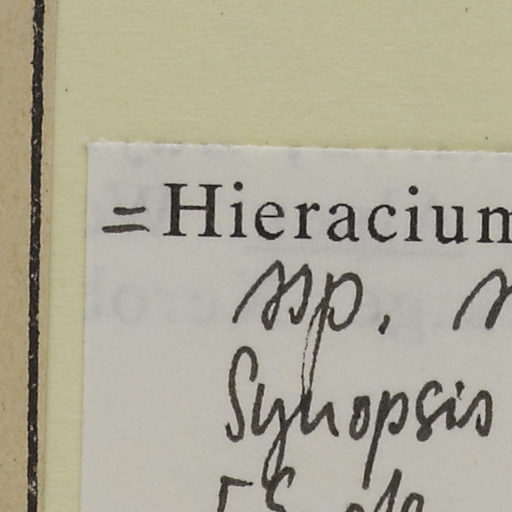 = Hieracium
ssp.
Synopsis